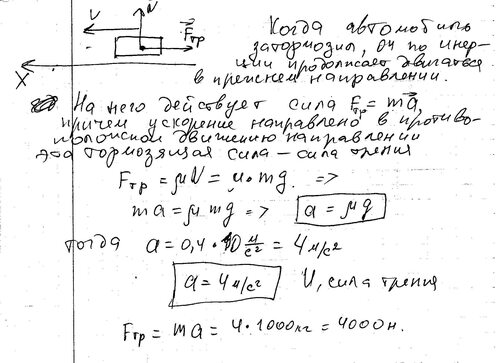 V
N
F⃗тр
X
Когда автомобиль
затормозил, он по инер-
ции продолжает двигаться
в прежнем направлении.
На него действует сила Fтр = ma⃗,
причем ускорение направлено в противо-
положном движению направлении
эта тормозящая сила - сила трения
Fтр = μN = μ·mg. =>
ma = μ mg => a = μg
тогда a = 0,4 · 10 м/с² = 4 м/с²
a = 4 м/с² И, сила трения
Fтр = ma = 4·1000кг = 4000н.